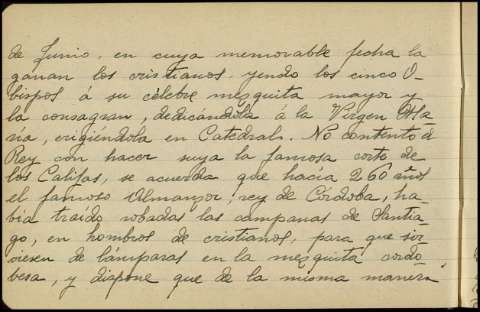 de Junio, en cuya memorable fecha la
ganan los cristianos yendo los cinco O-
bispos á su célebre mezquita mayor y
la consagran, dedicándola á la Virgen Ma-
ría, erigiéndola en Catedral. No contento el
Rey con hacer suya la famosa corte de
los Califas, se acuerda que hacia 260 años
el famoso Almanzor, rey de Córdoba, ha-
bía traido robadas las campanas de Santia-
go, en hombros de cristianos, para que sir-
viesen de lámparas en la mezquita cordo-
besa, y dispone que de la misma manera